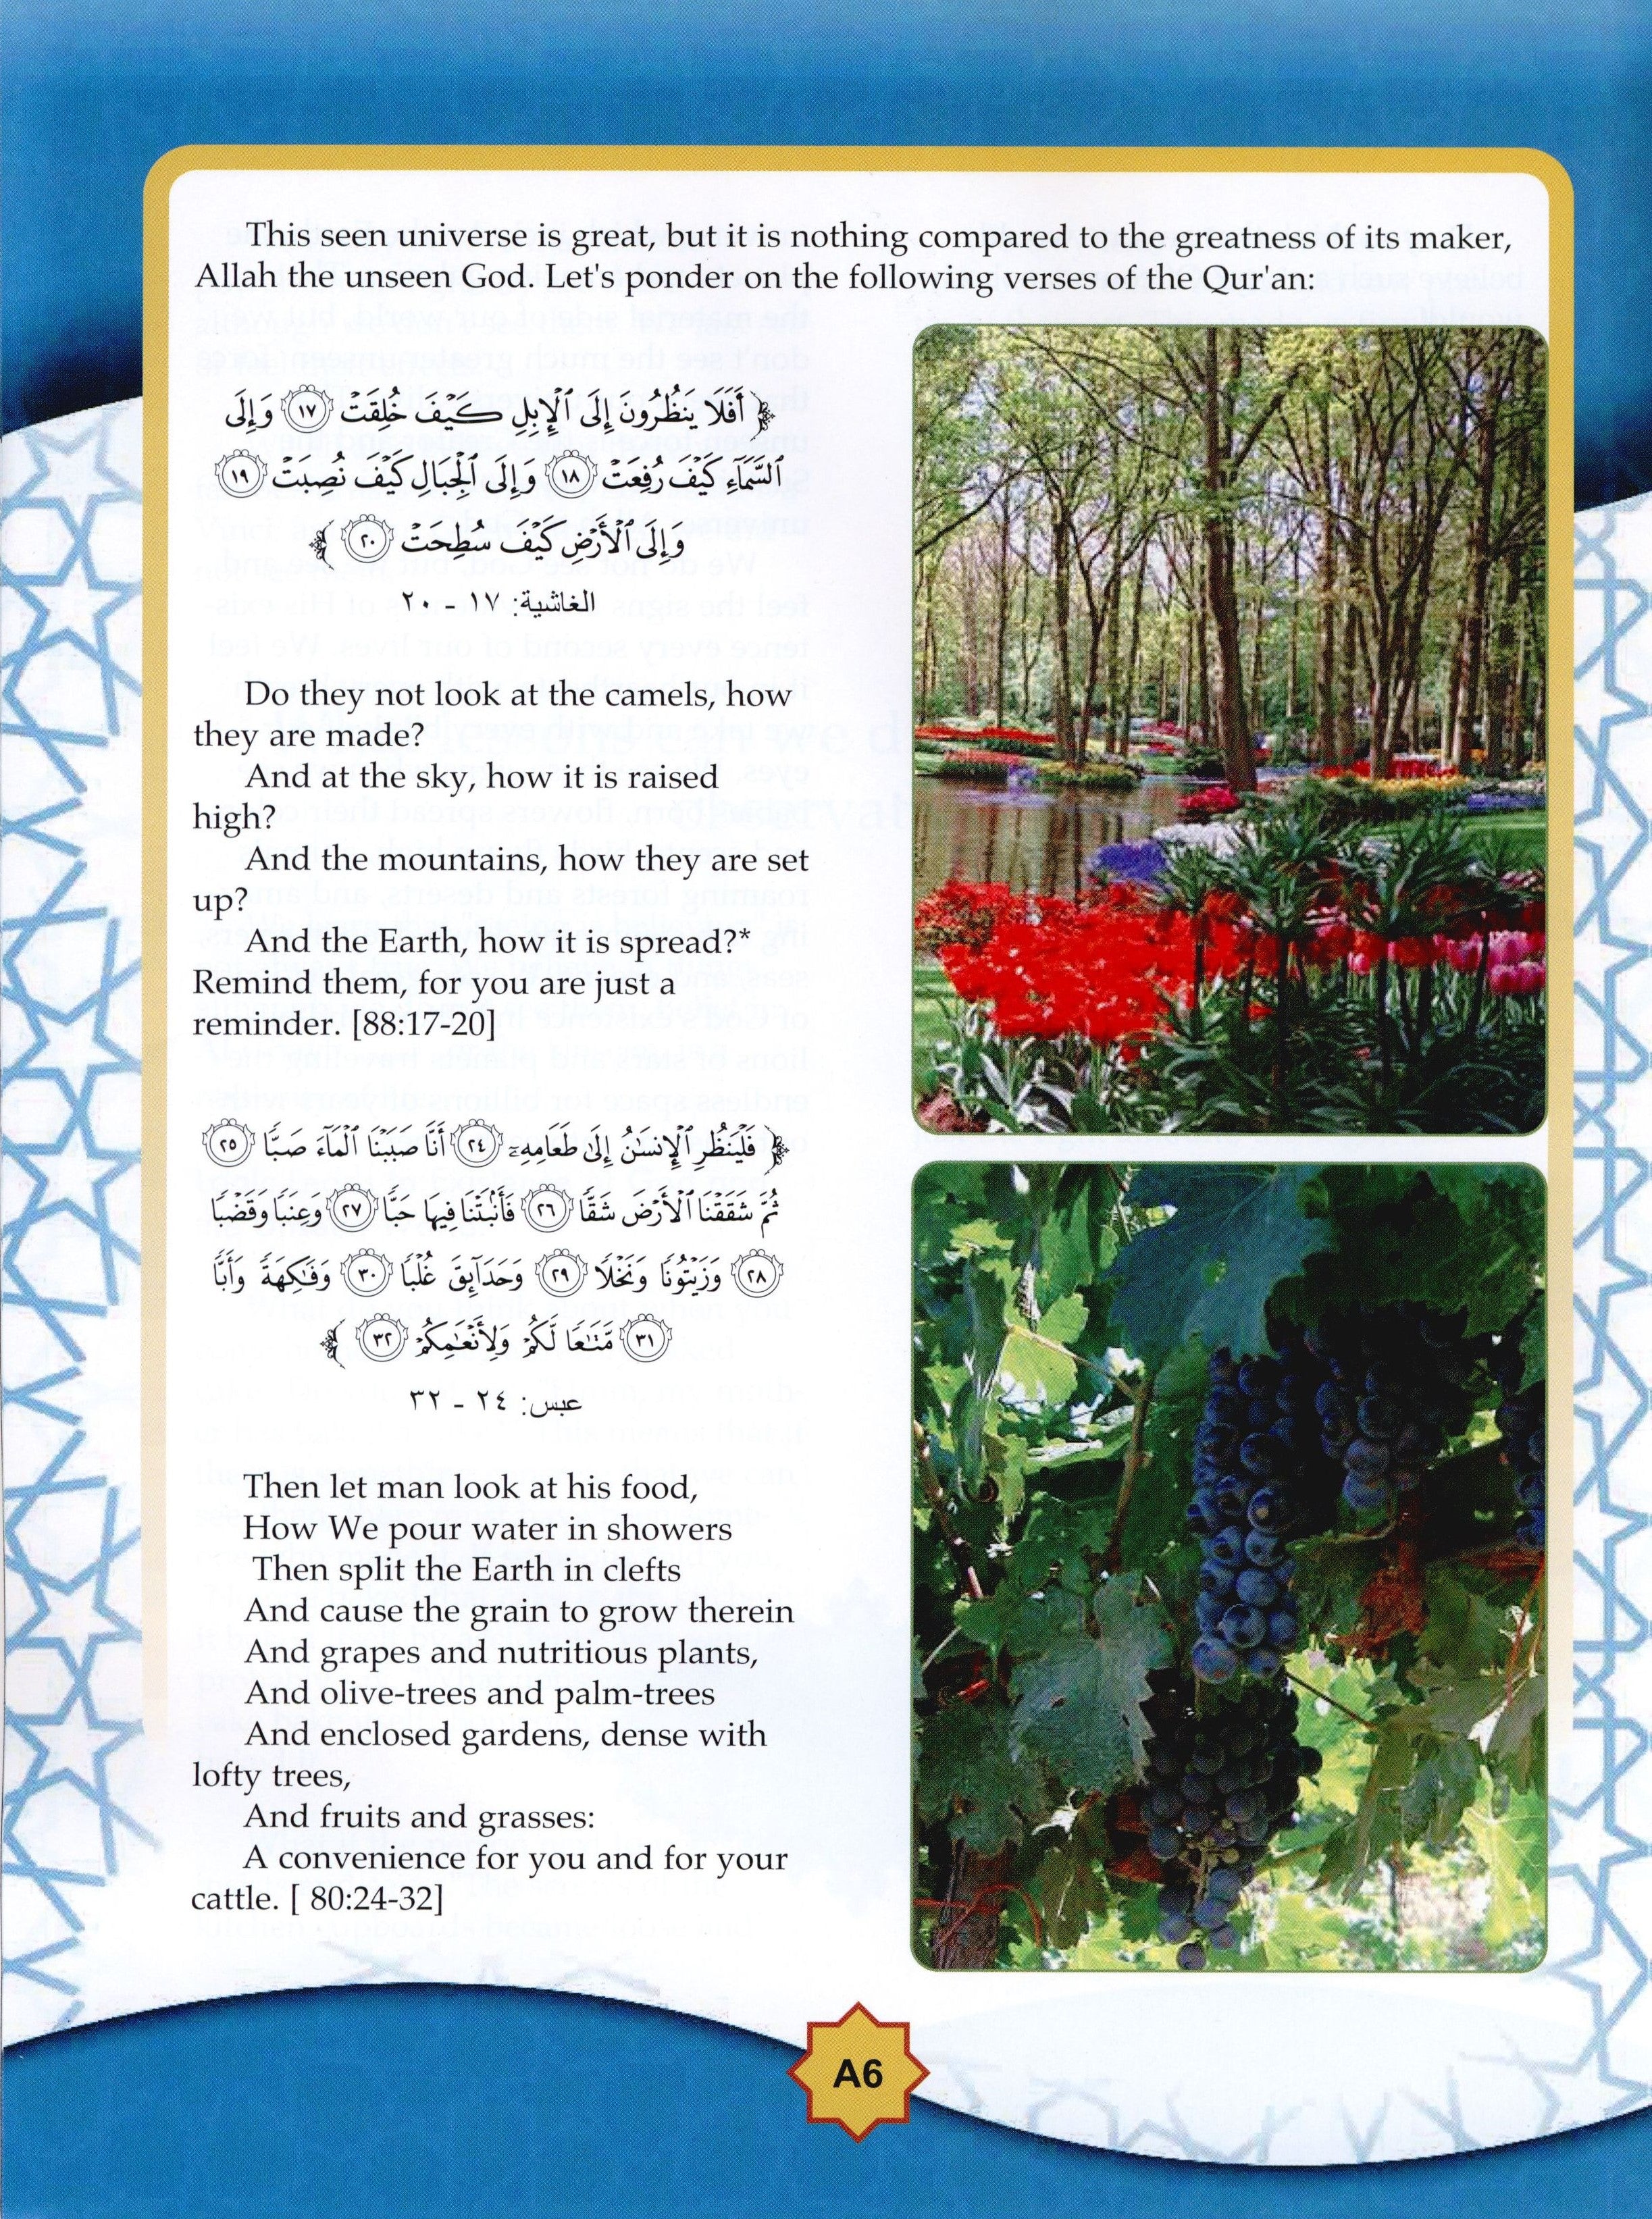 This seen universe is great, but it is nothing compared to the greatness of its maker,
Allah the unseen God. Let's ponder on the following verses of the Qur'an:
﴿ أَفَلَا يَنظُرُونَ إِلَى ٱلْإِبِلِ كَيْفَ خُلِقَتْ ١٧ وَإِلَى
ٱلسَّمَآءِ كَيْفَ رُفِعَتْ ١٨ وَإِلَى ٱلْجِبَالِ كَيْفَ نُصِبَتْ ١٩
وَإِلَى ٱلْأَرْضِ كَيْفَ سُطِحَتْ ٢٠ ﴾
الغاشية: ١٧ - ٢٠
Do they not look at the camels, how
they are made?
And at the sky, how it is raised
high?
And the mountains, how they are set
up?
And the Earth, how it is spread?*
Remind them, for you are just a
reminder. [88:17-20]
﴿ فَلْيَنظُرِ ٱلْإِنسَٰنُ إِلَىٰ طَعَامِهِۦٓ ٢٤ أَنَّا صَبَبْنَا ٱلْمَآءَ صَبًّا ٢٥
ثُمَّ شَقَقْنَا ٱلْأَرْضَ شَقًّا ٢٦ فَأَنۢبَتْنَا فِيهَا حَبًّا ٢٧ وَعِنَبًا وَقَضْبًا
٢٨ وَزَيْتُونًا وَنَخْلًا ٢٩ وَحَدَآئِقَ غُلْبًا ٣٠ وَفَٰكِهَةً وَأَبًّا
٣١ مَّتَٰعًا لَّكُمْ وَلِأَنْعَٰمِكُمْ ٣٢ ﴾
عبس: ٢٤ - ٣٢
Then let man look at his food,
How We pour water in showers
Then split the Earth in clefts
And cause the grain to grow therein
And grapes and nutritious plants,
And olive-trees and palm-trees
And enclosed gardens, dense with
lofty trees,
And fruits and grasses:
A convenience for you and for your
cattle. [ 80:24-32]
A6